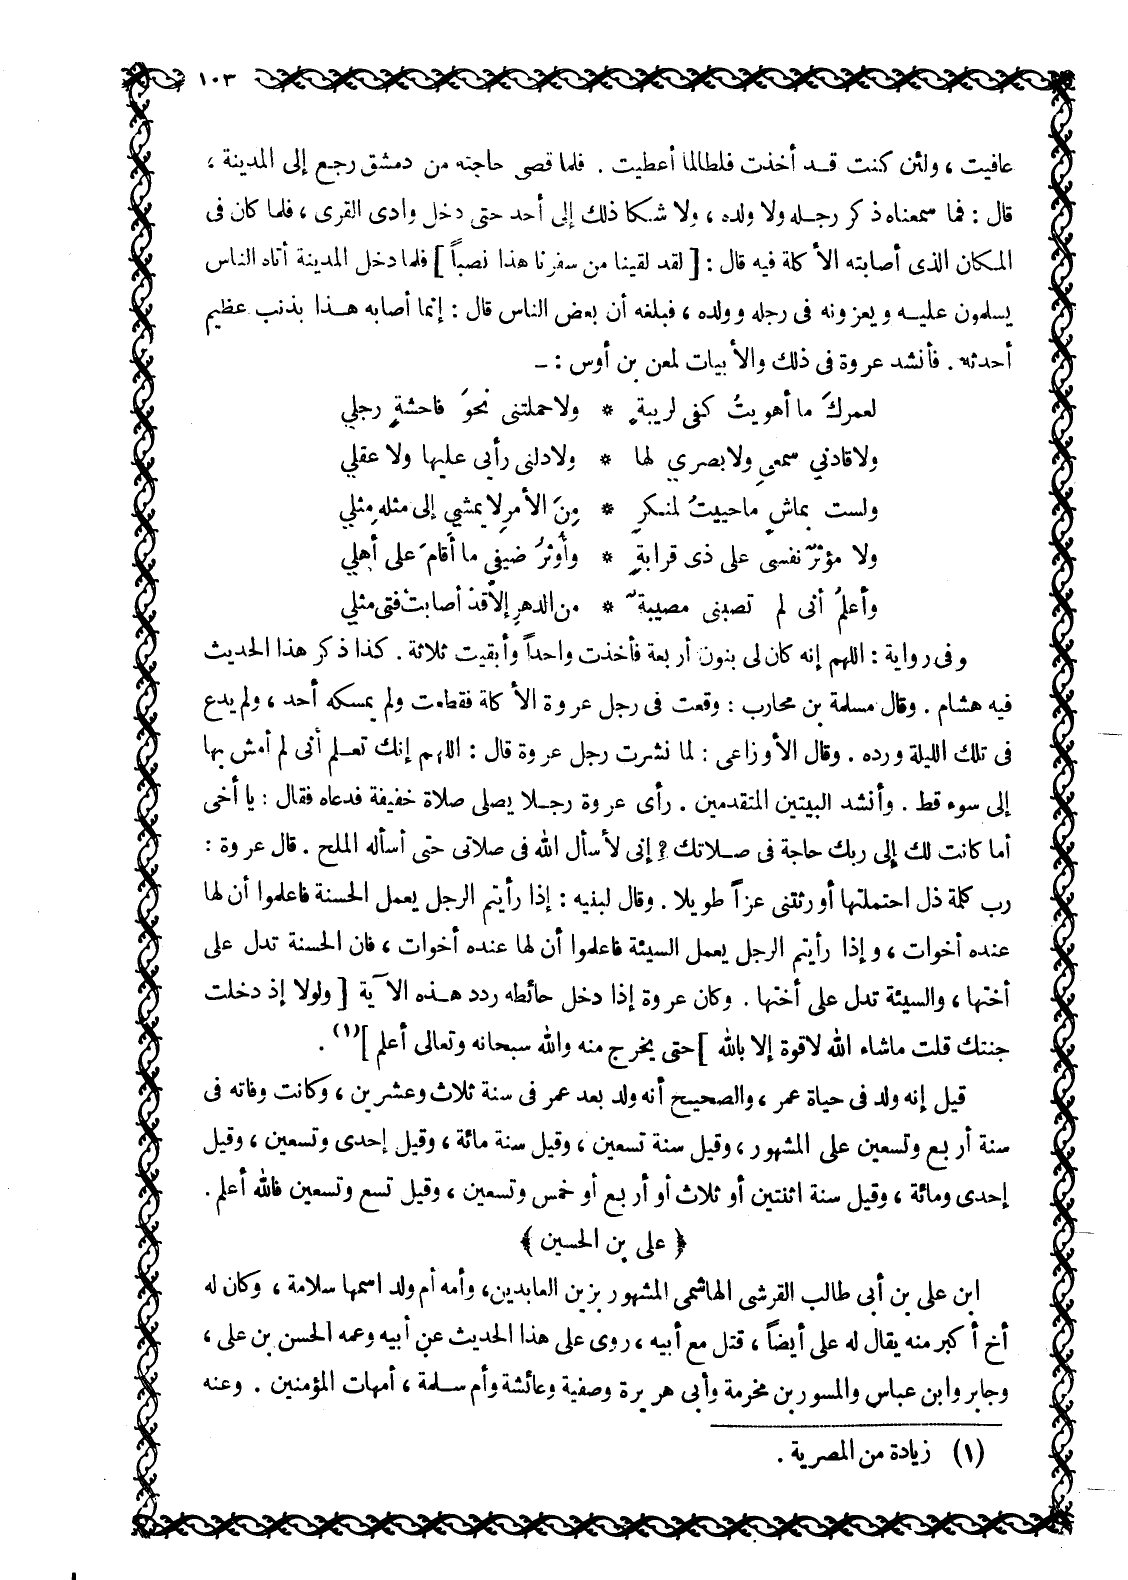 ١٠٣
عافيت ، ولئن كنت قد أخذت فلطالما أعطيت . فلما قضى حاجته من دمشق رجع إلى المدينة ،
قال : فما سمعناه ذكر رجله ولا ولده ، ولا شكا ذلك إلى أحد حتى دخل وادى القرى ، فلما كان فى
المكان الذى أصابته الأكلة فيه قال : [ لقد لقينا من سفرنا هذا نصباً ] فلما دخل المدينة أتاه الناس
يسلمون عليه ويعزونه فى رجله وولده ، فبلغه أن بعض الناس قال : إنما أصابه هذا بذنب عظيم
أحدثه . فأنشد عروة فى ذلك والأبيات لمعن بن أوس : ـ
لعمركَ ما أهويتُ كفى لريبةٍ * ولا حملتنى نحوَ فاحشةٍ رجلي
ولا قادني سمعي ولا بصري لها * ولا دلنى رأيي عليها ولا عقلي
ولست بماشٍ ماحييتُ لمنكرٍ * مِنَ الأمرِ لا يمشيِ إلى مثلهِ مِثلي
ولا مؤثرٌ نفسى على ذى قرابةٍ * وأُوثرُ ضيفي ما أقامَ على أهلي
وأعلمُ أنى لم تصبنى مصيبةٌ * من الدهرِ إلا قدْ أصابتْ فتى مثلي
وفى رواية : اللهم إنه كان لى بنون أربعة فأخذت واحداً وأبقيت ثلاثة . كذا ذكر هذا الحديث
فيه هشام . وقال مسلمة بن محارب : وقعت فى رجل عروة الأكلة فقطعت ولم يمسكه أحد ، ولم يدع
فى تلك الليلة ورده . وقال الأوزاعى : لما نشرت رجل عروة قال : اللهم إنك تعلم أنى لم أمش بها
إلى سوء قط . وأنشد البيتين المتقدمين . رأى عروة رجلا يصلى صلاة خفيفة فدعاه فقال : يا أخى
أما كانت لك إلى ربك حاجة فى صلاتك ؟ إنى لأسأل الله فى صلاتى حتى أسأله الملح . قال عروة :
رب كلمة ذل احتملتها أورثتنى عزاً طويلا . وقال لبنيه : إذا رأيتم الرجل يعمل الحسنة فاعلموا أن لها
عنده أخوات ، وإذا رأيتم الرجل يعمل السيئة فاعلموا أن لها عنده أخوات ، فان الحسنة تدل على
أختها ، والسيئة تدل على أختها . وكان عروة إذا دخل حائطه ردد هذه الآية [ ولولا إذ دخلت
جنتك قلت ماشاء الله لاقوة إلا بالله ] حتى يخرج منه والله سبحانه وتعالى أعلم ](١) .
قيل إنه ولد فى حياة عمر ، والصحيح أنه ولد بعد عمر فى سنة ثلاث وعشرين ، وكانت وفاته فى
سنة أربع وتسعين على المشهور ، وقيل سنة تسعين ، وقيل سنة مائة ، وقيل إحدى وتسعين ، وقيل
إحدى ومائة ، وقيل سنة اثنتين أو ثلاث أو أربع أو خمس وتسعين ، وقيل تسع وتسعين فالله أعلم .
﴿ على بن الحسين ﴾
ابن على بن أبى طالب القرشى الهاشمى المشهور بزين العابدين، وأمه أم ولد اسمها سلامة ، وكان له
أخ أكبر منه يقال له على أيضاً ، قتل مع أبيه ، روى على هذا الحديث عن أبيه وعمه الحسن بن على ،
وجابر وابن عباس والمسور بن مخرمة وأبى هريرة وصفية وعائشة وأم سلمة ، أمهات المؤمنين . وعنه
(١) زيادة من المصرية .